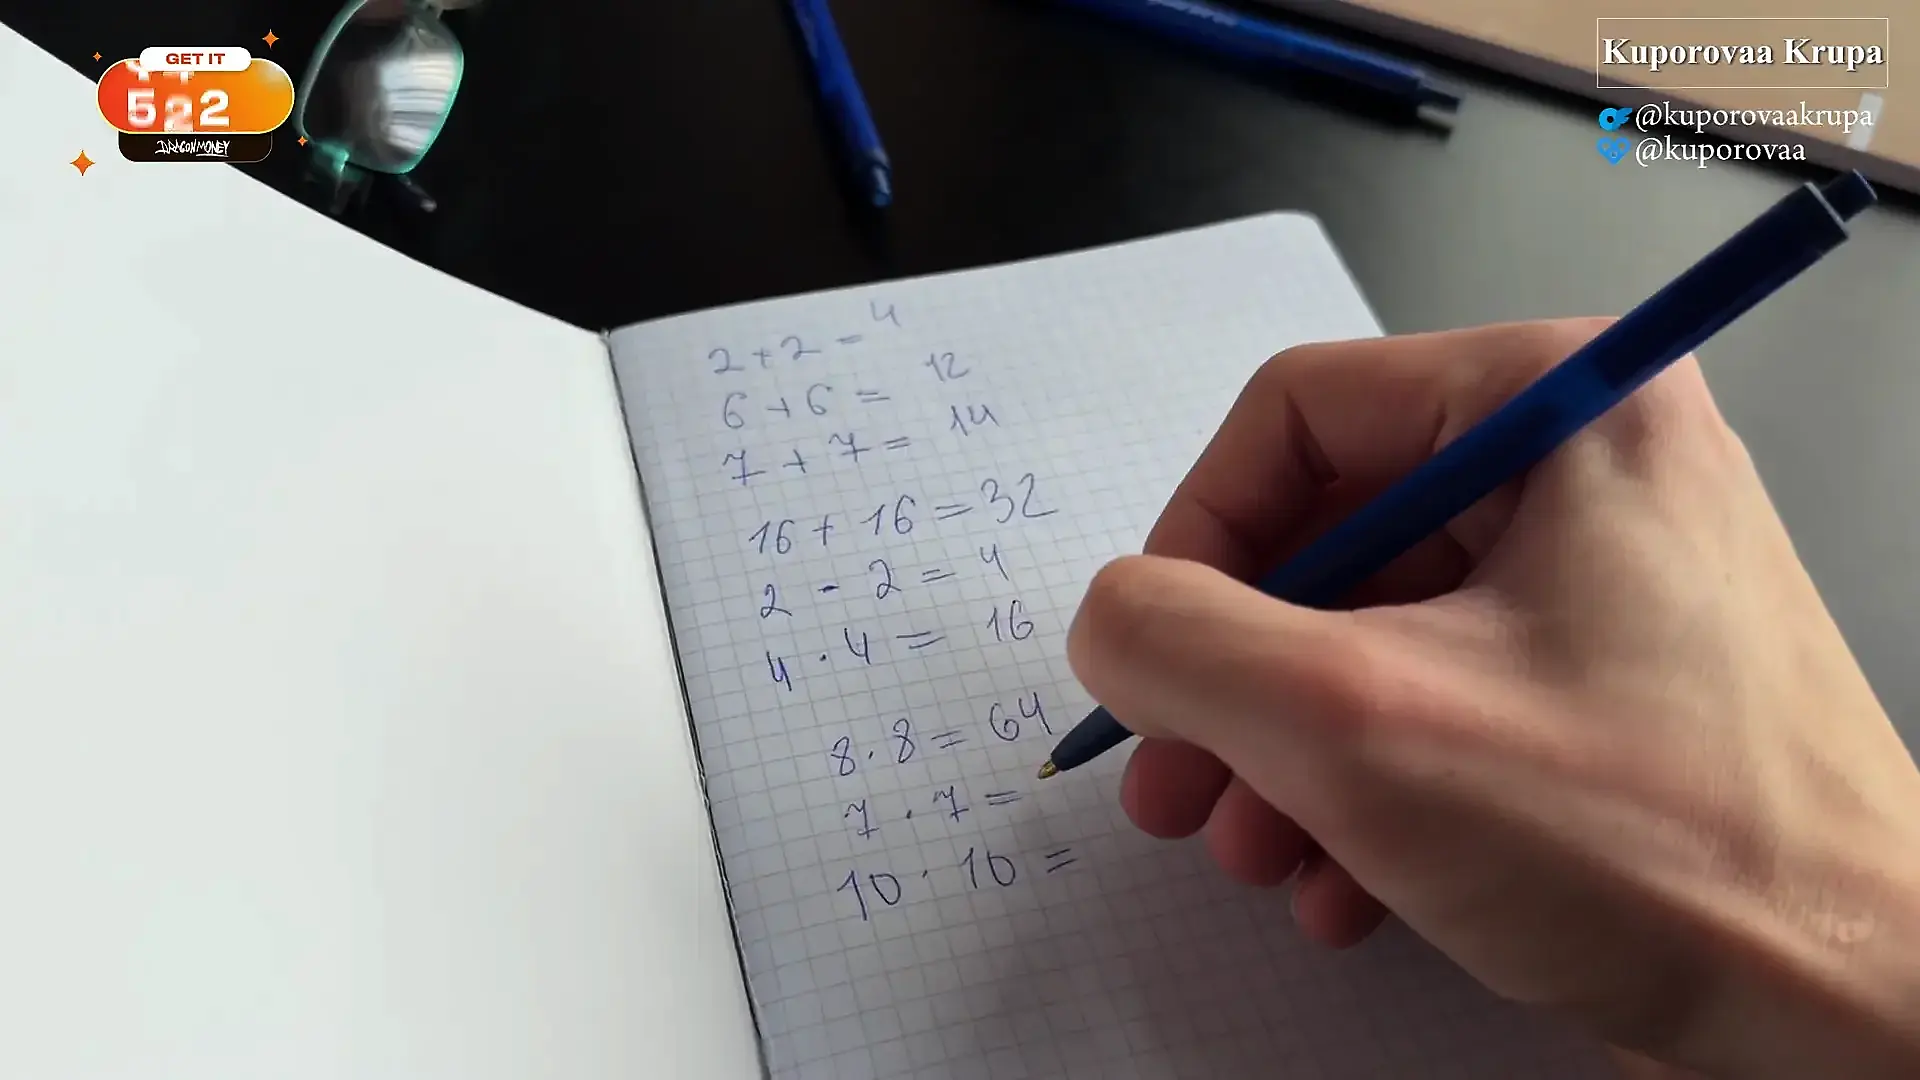 GET IT
DRAGON MONEY
Kuporovaa Krupa
@kuporovaakrupa
@kuporovaa
2 + 2 = 4
6 + 6 = 12
7 + 7 = 14
16 + 16 = 32
2 - 2 = 4
4 · 4 = 16
8 · 8 = 64
7 · 7 =
10 · 10 =